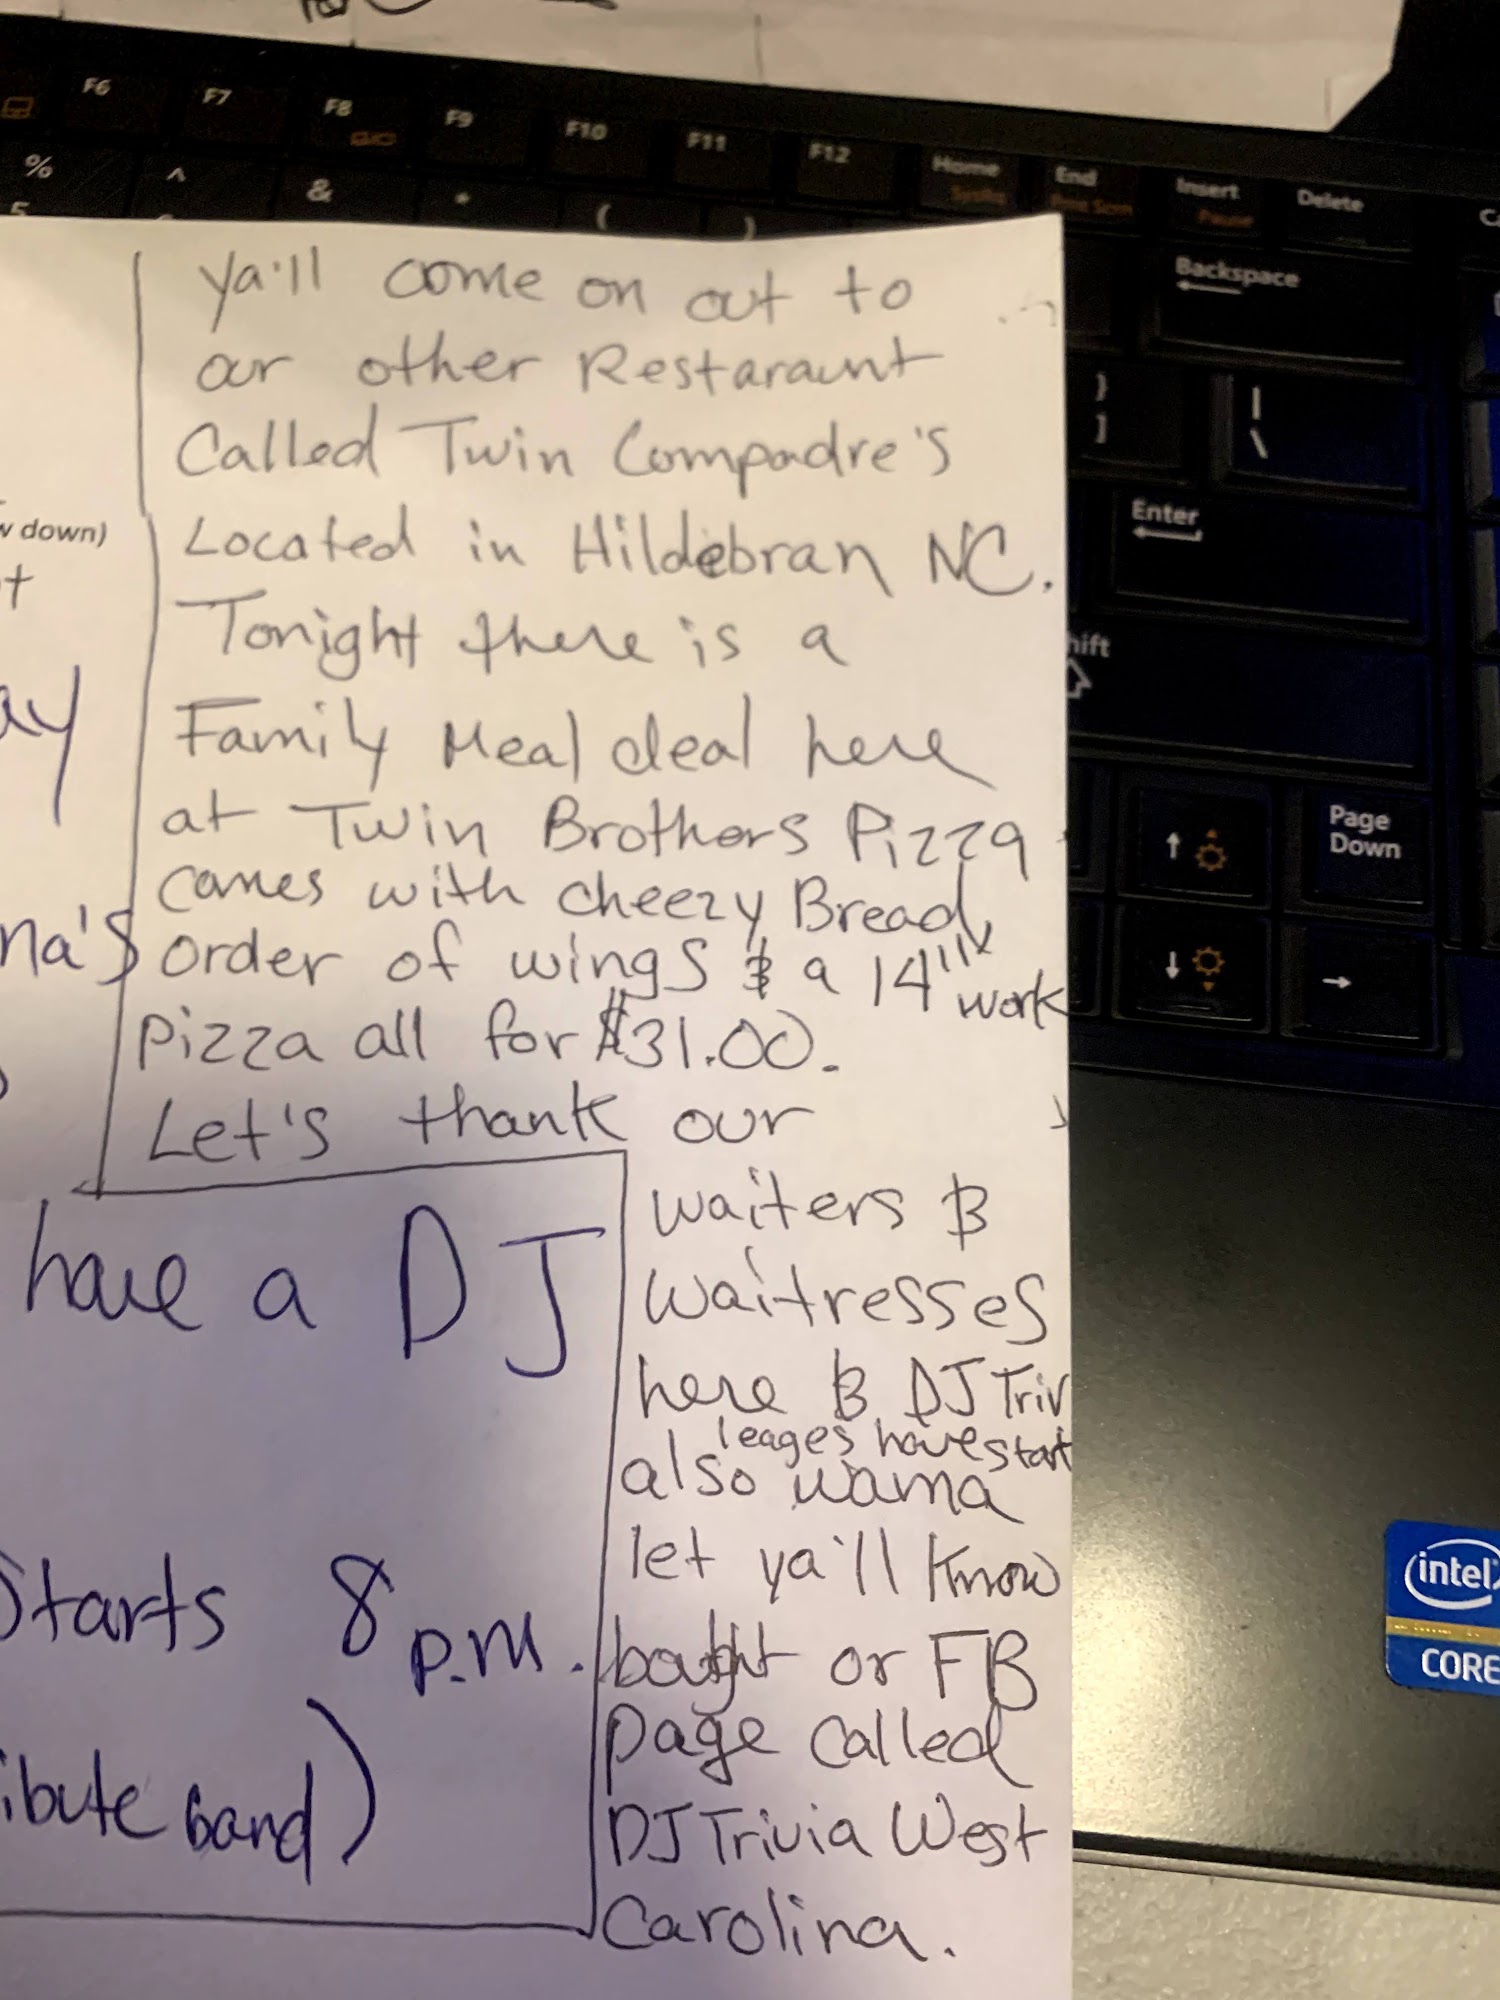 F6 F7 F8 F9 F10 F11 F12 Home End Insert Delete
Pause
% ^ & * ( )
5
Backspace
} ]
| \
Enter
hift
Page
Down
ya'll come on out to
our other Restaraunt
Called Twin Compadre's
Located in Hildebran NC.
Tonight there is a
Family Meal deal here
at Twin Brothers Pizza
comes with cheezy Bread,
order of wings & a 14"
work
Pizza all for $31.00.
Let's thank our
waiters &
waitresses
here & DJ Triv
leages have start
also wanna
let ya'll know
or FB
page called
DJ Trivia West
Carolina.
w down)
t
ay
na's
have a DJ
Starts 8 p.m.
ibute band)
intel
CORE